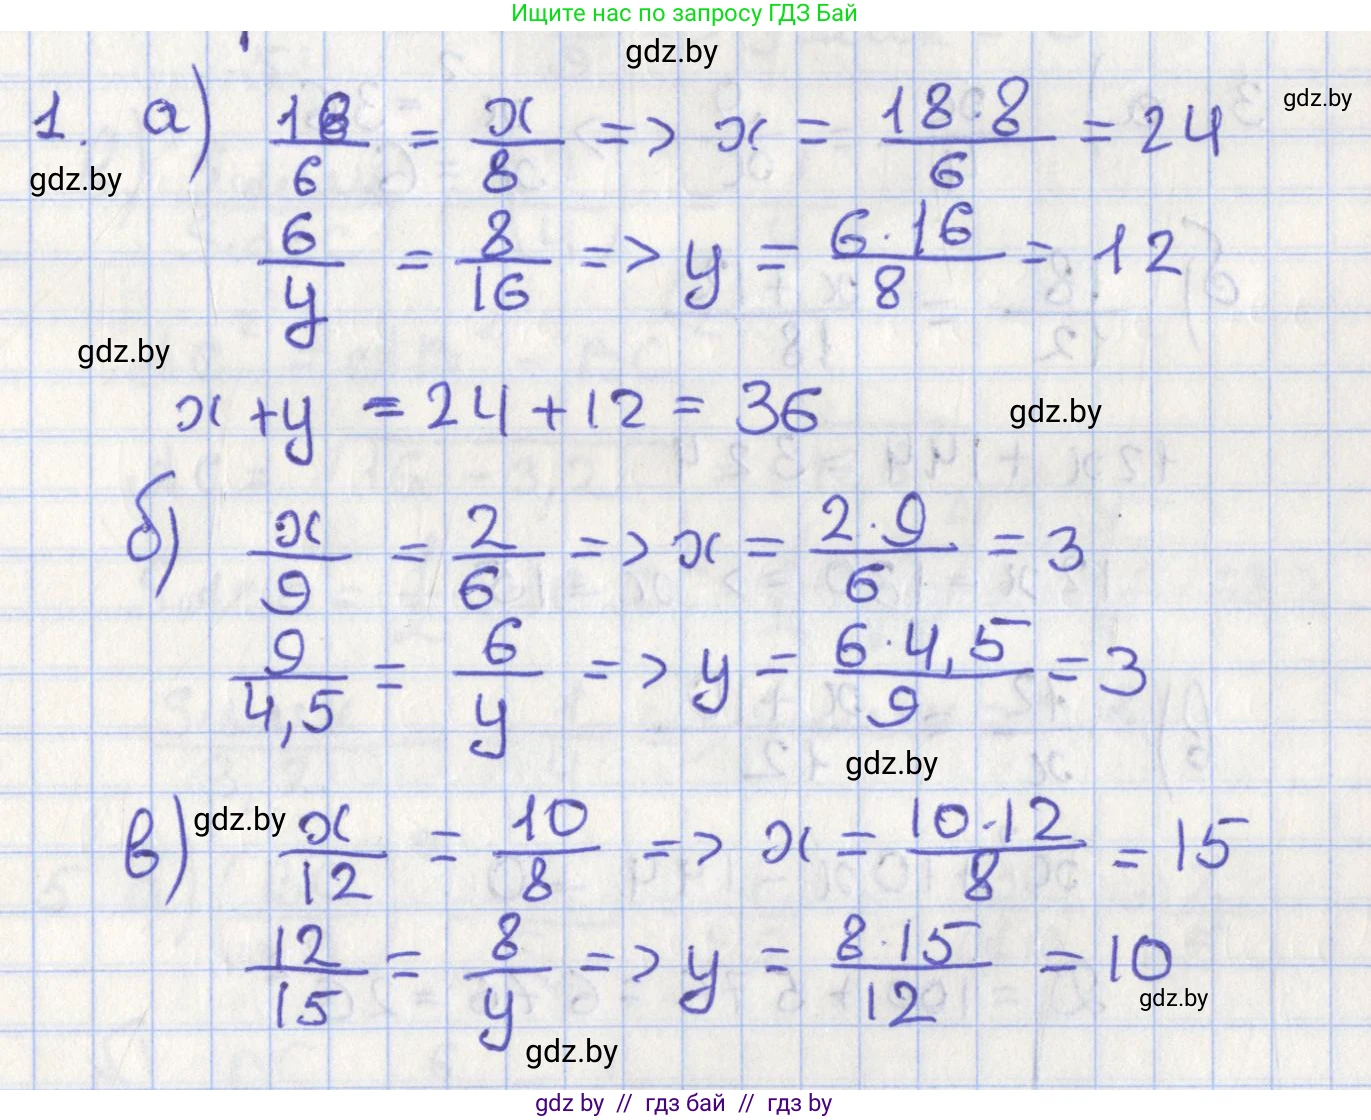 Ищите нас по запросу ГДЗ Бай
gdz.by
1. а) 18/6 = x/8 => x = 18·8/6 = 24
gdz.by
gdz.by
6/y = 8/16 => y = 6·16/8 = 12
gdz.by
x + y = 24 + 12 = 36
gdz.by
б) x/9 = 2/6 => x = 2·9/6 = 3
9/4,5 = 6/y => y = 6·4,5/9 = 3
gdz.by
в) x/12 = 10/8 => x = 10·12/8 = 15
gdz.by
12/15 = 8/y => y = 8·15/12 = 10
gdz.by
gdz.by
gdz by // гдз бай // гдз by